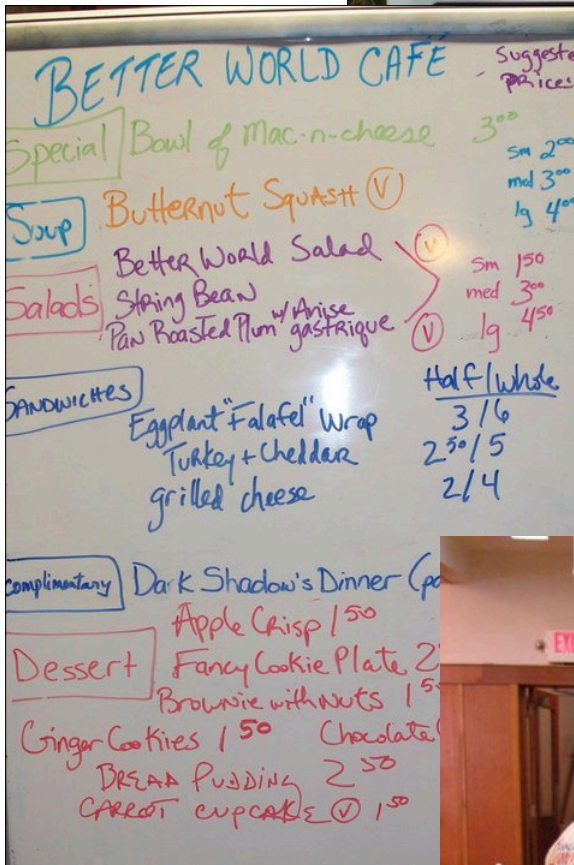 BETTER WORLD CAFE
Suggeste
prices
Special Bowl of Mac-n-cheese 3⁰⁰
Soup Butternut Squash V
sm 2⁰⁰
med 3⁰⁰
lg 4⁰⁰
Salads
Better World Salad V
String Bean
Pan Roasted Plum w/ Anise gastrique V
sm 1⁵⁰
med 3⁰⁰
lg 4⁵⁰
SANDWICHES
Half/whole
Eggplant "Falafel" Wrap 3/6
Turkey + Cheddar 2⁵⁰/5
grilled cheese 2/4
Complimentary Dark Shadow's Dinner (po
Dessert
Apple Crisp 1⁵⁰
Fancy Cookie Plate 2
Brownie with Nuts 1⁵
Ginger Cookies 1⁵⁰ Chocolate
BREAD PUDDING 2⁵⁰
CARROT CUPCAKE V 1⁵⁰
EXI